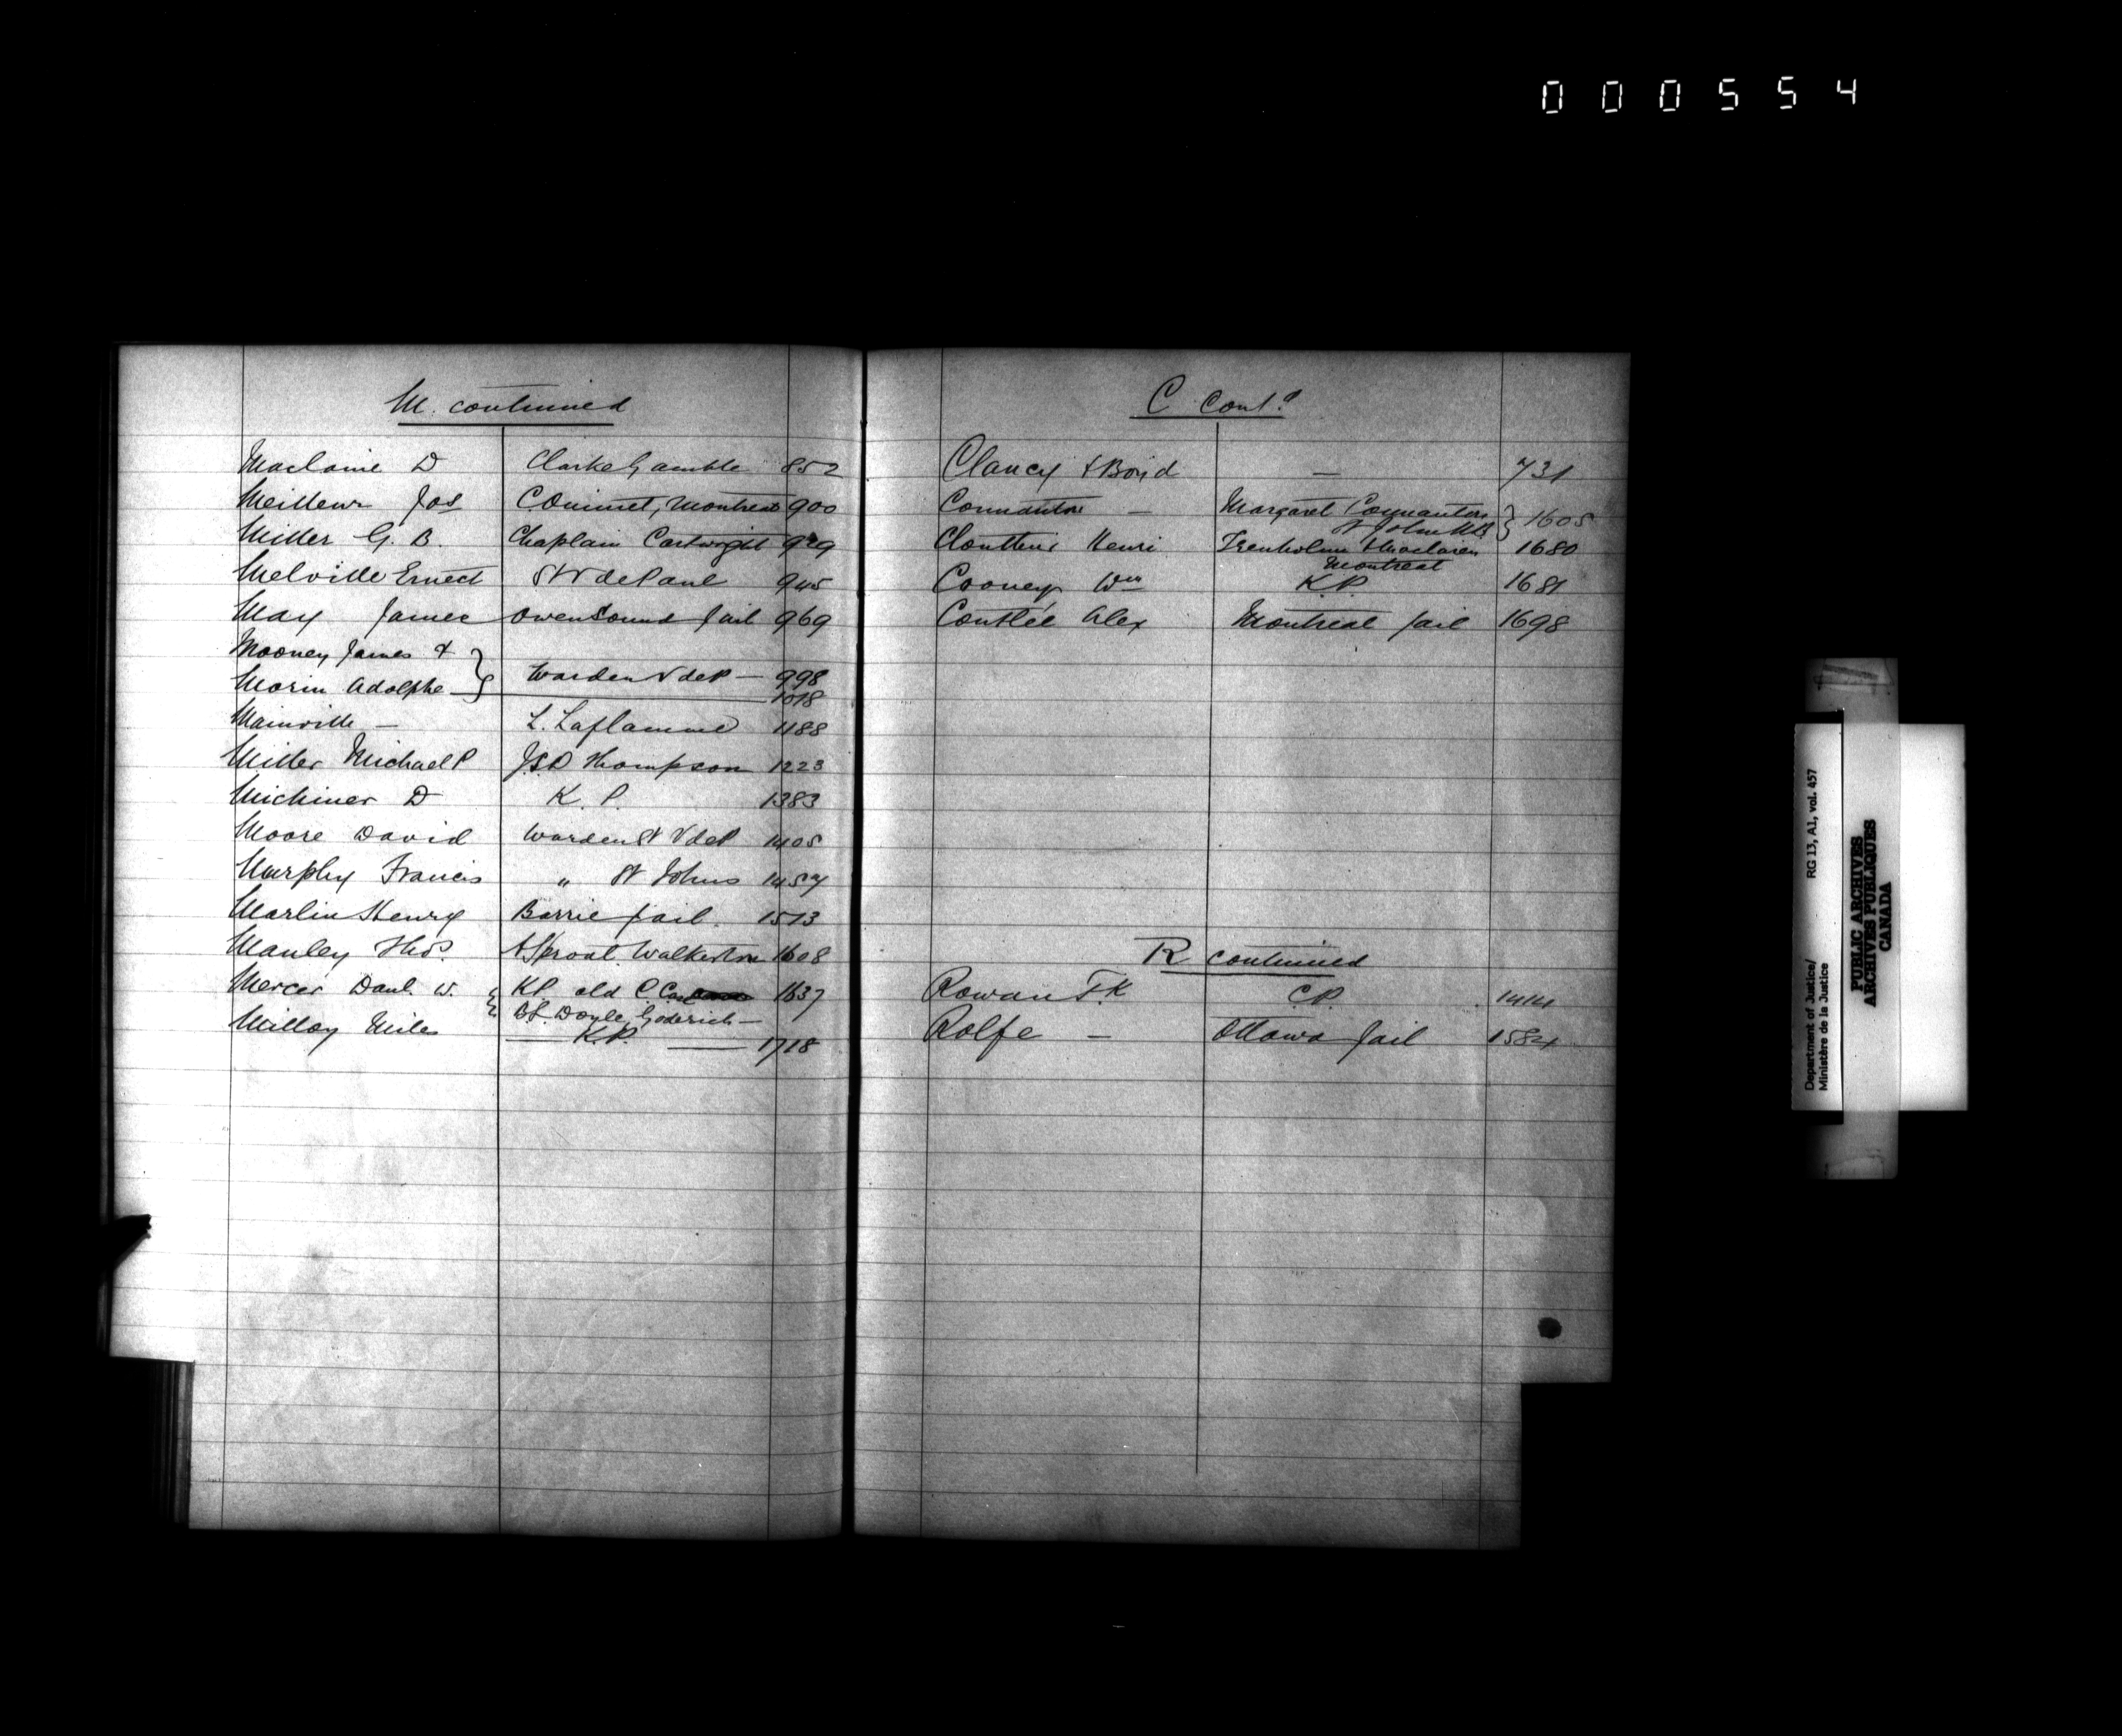 000554
M. continued
Maclaine D Clarke Gamble 852
Meilleur Jos C Ouimet, Montreal 900
Miller G. B. Chaplain Cartwright 929
Melville Ernest St V de Paul 945
May James Owen Sound Jail 969
Mooney James &
Morin Adolphe } Warden V de P — 998
1018
Mainville — L. Laflamme 1188
Miller Michael P J.S.D Thompson 1223
Michiner D K. P. 1383
Moore David Warden St V de P 1405
Murphy Francis " St Johns 1457
Marlin Henry Barrie Jail. 1513
Manley Thos. A Sproat. Walkerton 1608
Mercer Danl. W. { K.P. old C. Case 1637
B.L. Doyle, Goderich —
Milloy Miles — K.P. — 1718
C Cont.d
Clancy & Boyd — 731
Connanton — Margaret Connanton } 1605
St John NB
Clouthier Henri Trenholm & Maclaren 1680
Montreal
Cooney Wm K.P. 1681
Coutlée Alex Montreal Jail 1698
R continued
Rowan F.K C.P. 1414
Rolfe — Ottawa Jail 1584
Department of Justice/ RG 13, A1, vol. 457
Ministère de la Justice
PUBLIC ARCHIVES
ARCHIVES PUBLIQUES
CANADA